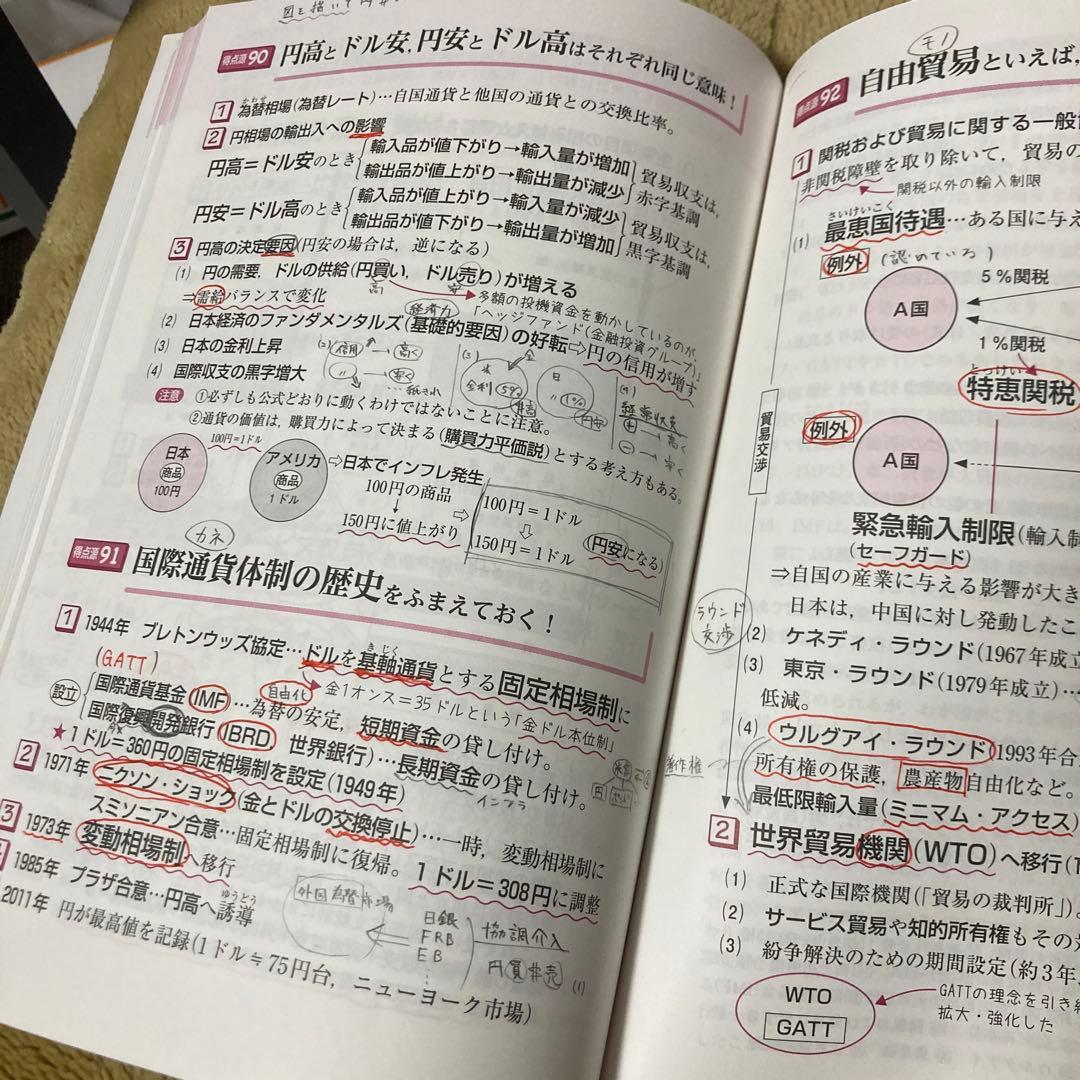 図を描いて
得点源90 円高とドル安，円安とドル高はそれぞれ同じ意味！
1 為替相場(為替レート)…自国通貨と他国の通貨との交換比率。
かわせ
2 円相場の輸出入への影響
円高＝ドル安のとき
輸入品が値下がり→輸入量が増加
輸出品が値上がり→輸出量が減少
貿易収支は，
赤字基調
円安＝ドル高のとき
輸入品が値上がり→輸入量が減少
輸出品が値下がり→輸出量が増加
貿易収支は，
黒字基調
3 円高の決定要因(円安の場合は，逆になる)
(1) 円の需要，ドルの供給(円買い，ドル売り)が増える
高 安
⇒需給バランスで変化
多額の投機資金を動かしているのが，
「ヘッジファンド(金融投資グループ)」
経済力
(2) 日本経済のファンダメンタルズ(基礎的要因)の好転⇨円の信用が増す
(3) 日本の金利上昇
(4) 国際収支の黒字増大
(2) 信用 → 高く
〃 → 安く
… 紙きれ
(3) 米 金利 5% 日 〃 1%
金
円安
(4)
経常収支
＋ → 高く
− → 安く
注意 ①必ずしも公式どおりに動くわけではないことに注意。
②通貨の価値は，購買力によって決まる(購買力平価説)とする考え方もある。
100円＝1ドル
日本
商品
100円
アメリカ
商品
1ドル
⇨日本でインフレ発生
100円の商品
↓
150円に値上がり
⇨
100円＝1ドル
⇩
150円＝1ドル
(円安になる)
カネ
得点源91 国際通貨体制の歴史をふまえておく！
1 1944年 ブレトンウッズ協定…ドルを基軸通貨とする固定相場制に
きじく
(GATT)
自由化
金1オンス＝35ドルという「金ドル本位制」
設立
国際通貨基金(IMF)…為替の安定，短期資金の貸し付け。
国際復興開発銀行(IBRD 世界銀行)…長期資金の貸し付け。
インフラ
★1ドル＝360円の固定相場制を設定(1949年)
2 1971年 ニクソン・ショック(金とドルの交換停止)…一時，変動相場制に
スミソニアン合意…固定相場制に復帰。1ドル＝308円に調整
3 1973年 変動相場制へ移行
1985年 プラザ合意…円高へ誘導
ゆうどう
2011年 円が最高値を記録(1ドル≒75円台，ニューヨーク市場)
外国為替市場
日銀
FRB
EB
⋮
協調介入
円買 売
(1)
モノ
得点源92 自由貿易といえば，
1 関税および貿易に関する一般
非関税障壁を取り除いて，貿易の
関税以外の輸入制限
さいけいこく
(1) 最恵国待遇…ある国に与え
例外 (認めている)
A国
5％関税
1％関税
とっけい
特恵関税
例外
A国
貿易交渉
緊急輸入制限(輸入
(セーフガード)
⇒自国の産業に与える影響が大き
日本は，中国に対し発動したこ
ラウンド
交渉
(2) ケネディ・ラウンド(1967年成立
(3) 東京・ラウンド(1979年成立)…
低減。
(4) ウルグアイ・ラウンド(1993年合
著作権
所有権の保護，農産物自由化など。
最低限輸入量(ミニマム・アクセス)
2 世界貿易機関(WTO)へ移行(1
(1) 正式な国際機関(「貿易の裁判所」)。
(2) サービス貿易や知的所有権もその対
(3) 紛争解決のための期間設定(約3年
WTO
GATT
GATTの理念を引き継
拡大・強化した